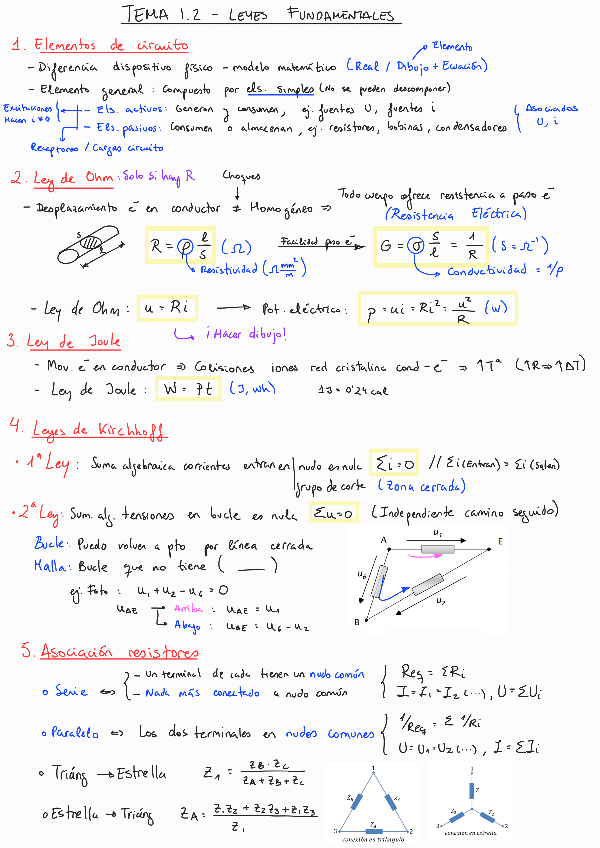 TEMA 1.2 - LEYES FUNDAMENTALES
1. Elementos de circuito
Elemento
- Diferencia dispositivo físico - modelo matemático (Real / Dibujo + Ecuación)
- Elemento general: Compuesto por els. simples (No se pueden descomponer)
Excitaciones
Hacen i≠0
- Els. activos: Generan y consumen, ej. fuentes U, fuentes i
- Els. pasivos: Consumen o almacenan, ej. resistores, bobinas, condensadores
Asociados
U, i
Receptores / Cargas circuito
2. Ley de Ohm: Solo si hay R
Choques
- Desplazamiento e⁻ en conductor ≠ Homogéneo ⇒ Todo cuerpo ofrece resistencia a paso e⁻
(Resistencia Eléctrica)
S
l
R = ρ l/S (Ω)
Facilidad paso e⁻
G = σ S/l = 1/R (S = Ω⁻¹)
Resistividad (Ω mm²/m)
Conductividad = 1/ρ
- Ley de Ohm: u = Ri → Pot. eléctrica: p = ui = Ri² = u²/R (W)
¡Hacer dibujo!
3. Ley de Joule
- Mov. e⁻ en conductor ⇒ Colisiones iones red cristalina cond - e⁻ ⇒ ↑Tª (↑R⇒↑ΔT)
- Ley de Joule: W = Pt (J, Wh) 1J = 0'24 cal
4. Leyes de Kirchhoff
• 1ª Ley: Suma algebraica corrientes entran en nudo es nula Σi=0 // Σi(Entran) = Σi(Salen)
grupo de corte (Zona cerrada)
• 2ª Ley: Sum. alg. tensiones en bucle es nula Σu=0 (Independiente camino seguido)
Bucle: Puedo volver a pto por línea cerrada
Malla: Bucle que no tiene ( ___ )
ej. Foto: u₁ + u₂ - u₆ = 0
uAE → Arriba: uAE = u₁
Abajo: uAE = u₆ - u₂
A
u₁
E
u₆
u₂
B
5. Asociación resistores
o Serie ⇔ - Un terminal de cada tienen un nudo común
- Nada más conectado a nudo común
Req = ΣRi
I = I₁ = I₂ (...), U = ΣUi
o Paralelo ⇔ Los dos terminales en nudos comunes
1/Req = Σ 1/Ri
U = U₁ = U₂ (...), I = ΣIi
o Triáng → Estrella Z₁ = ZB·ZC / ZA+ZB+ZC
o Estrella → Triáng ZA = Z₁Z₂ + Z₂Z₃ + Z₁Z₃ / Z₁
1
3
2
conexión en triángulo
1
3
2
conexión en estrella